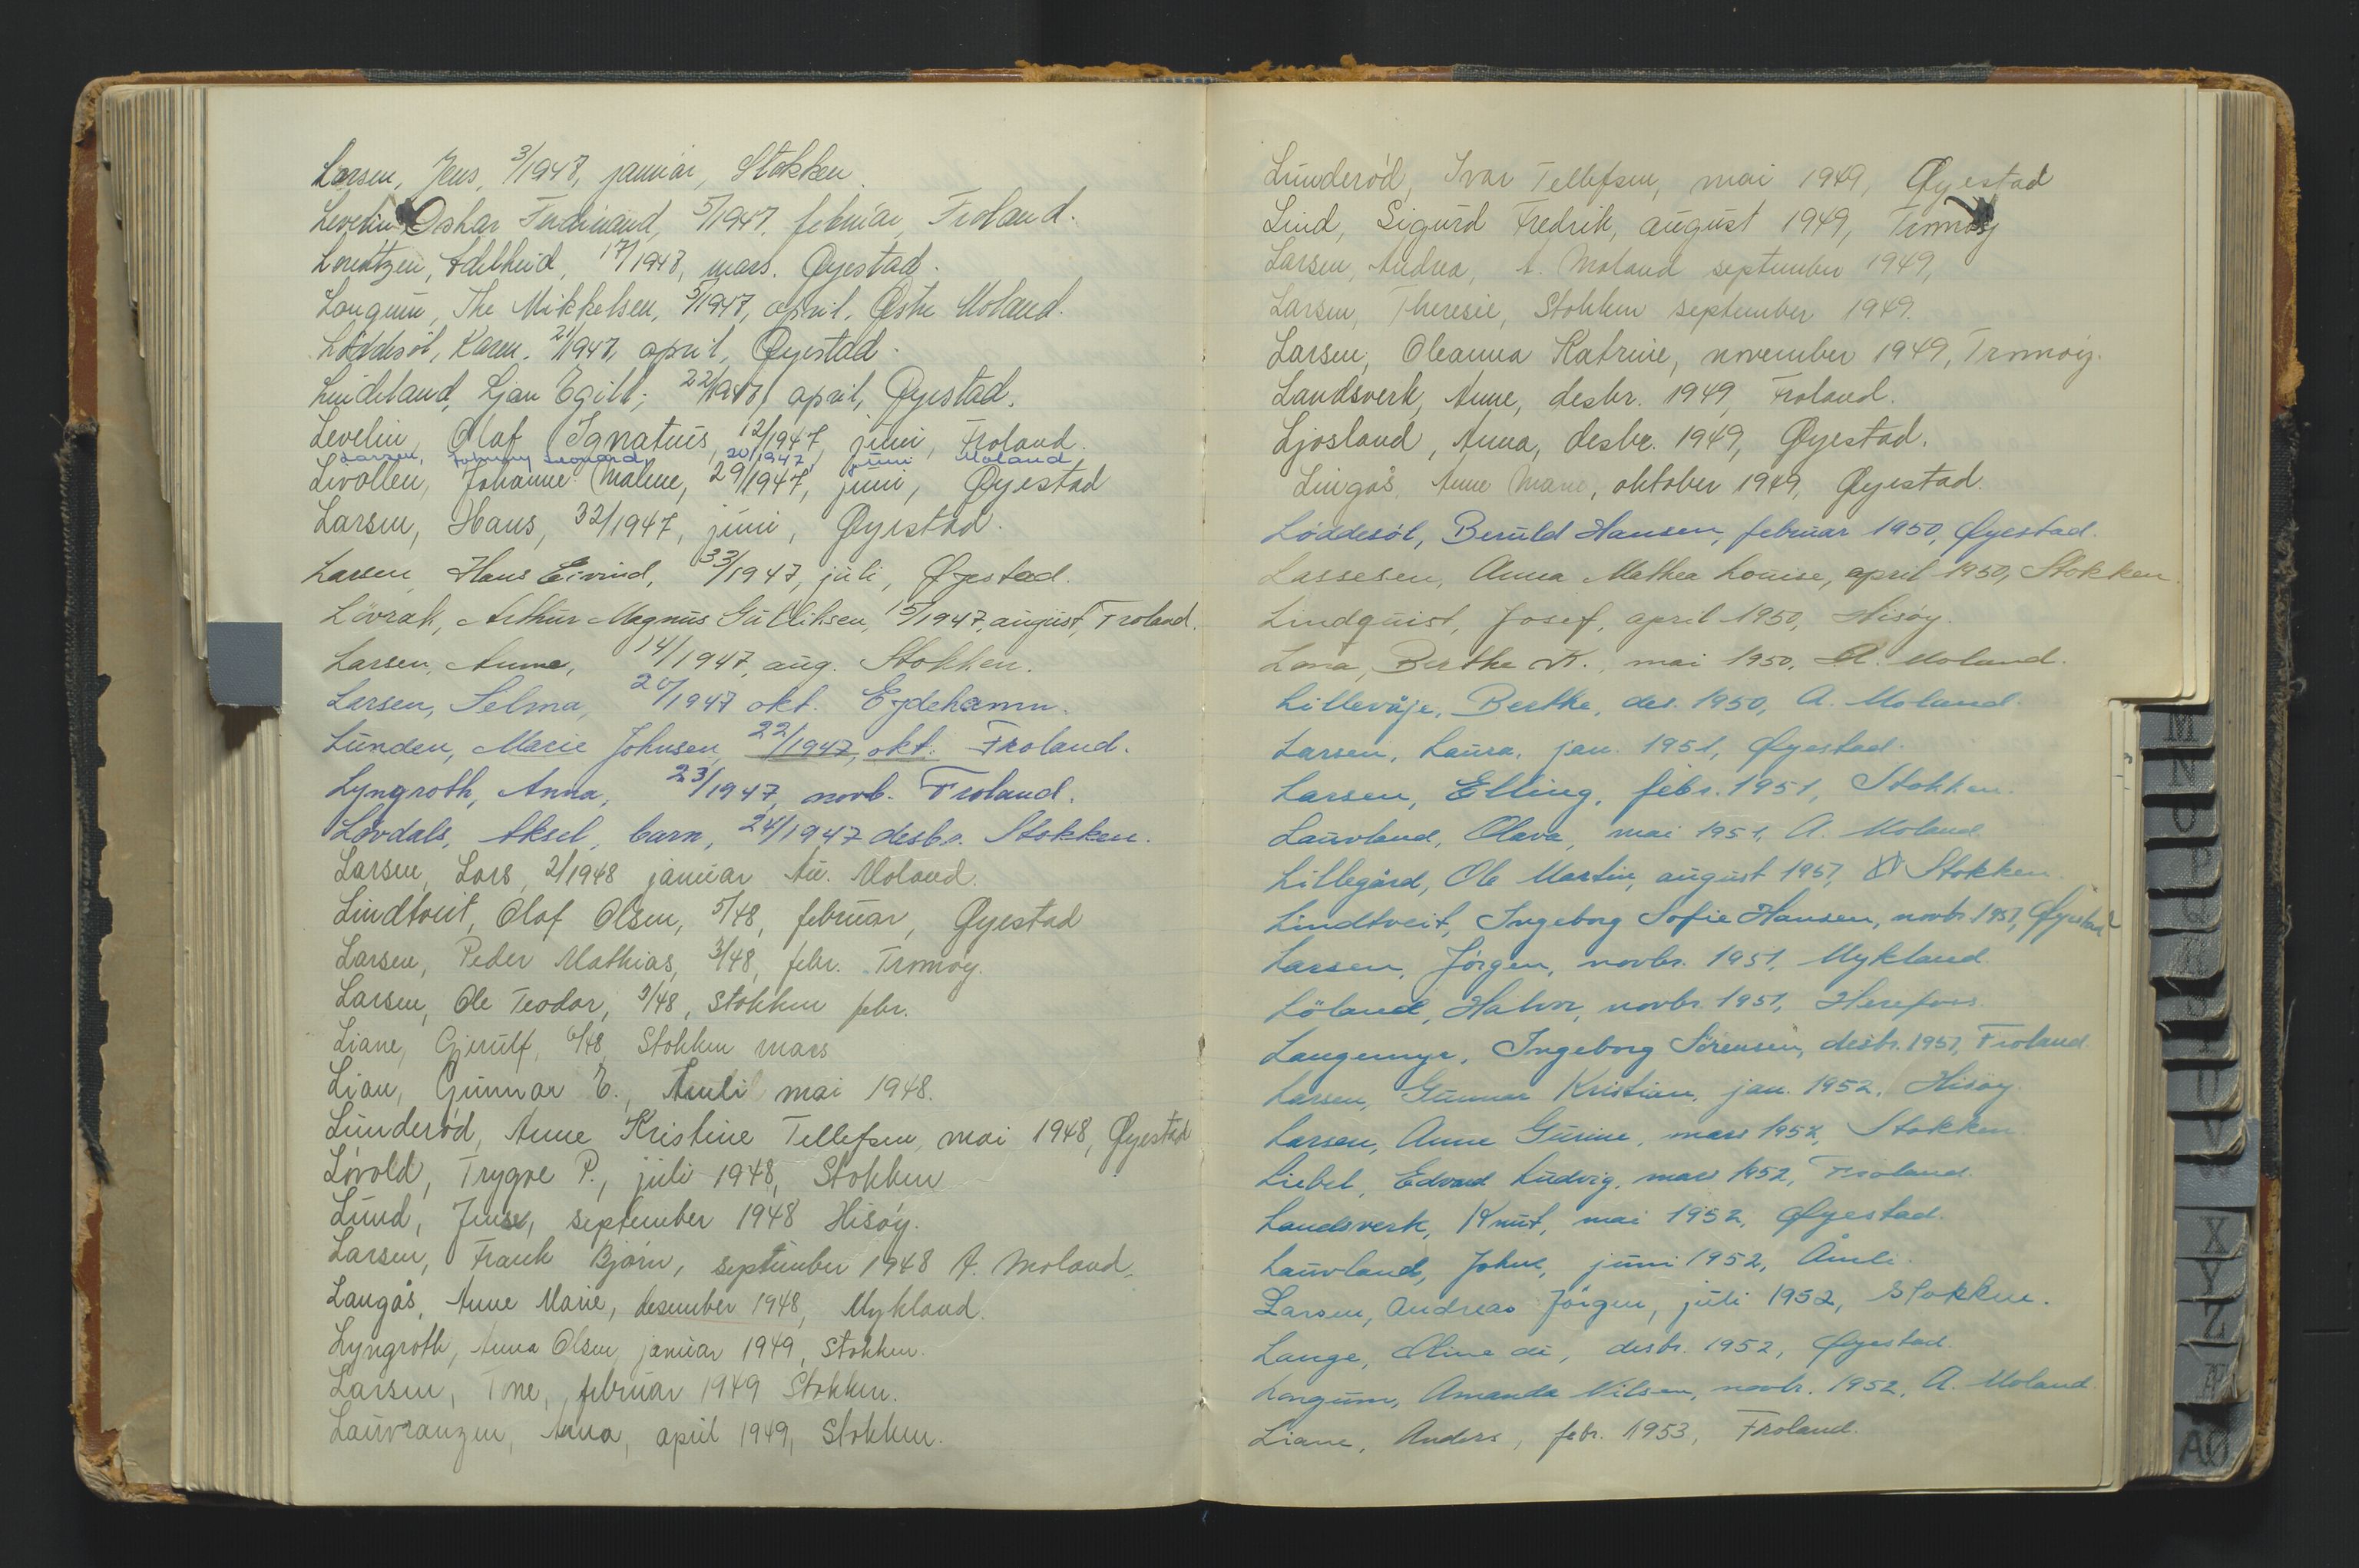 Larsen, Jens, 3/1947, januar, Stokken
Levelin Oskar Ferdinand, 5/1947, februar, Froland.
Lorentzen, Adelheid, 17/1947, mars. Øyestad.
Langum, The Mikkelsen, 5/1947, april, Østre Moland.
Løddesøl, Karen, 21/1947, april, Øyestad.
Lindeland, Ljan Egill, 22/1947, april, Øyestad.
Levelin, Olaf Ignatius, 12/1947, juni, Froland.
Larsen, Johnny Leonard, 20/1947, juni Moland
Livollen, Johanne Maline, 29/1947, juni, Øyestad
Larsen, Hans, 32/1947, juni, Øyestad.
Larsen, Hans Eivind, 33/1947, juli, Øyestad.
Lövrak, Arthur Magnus Gulliksen, 15/1947, august, Froland.
Larsen, Anna, 14/1947, aug. Stokken.
Larsen, Selma, 20/1947 okt. Eydehamn.
Lunden, Marie Johnsen, 22/1947, okt. Froland.
Lyngroth, Anna, 23/1947, novb. Froland.
Lövdals, Aksel, barn, 24/1947 desbr. Stokken.
Larsen, Lars, 2/1948 januar Au. Moland.
Lindtveit, Olaf Olsen, 5/48, februar, Øyestad
Larsen, Peder Mathias, 3/48, febr. Tromøy.
Larsen, Ole Teodor, 3/48, Stokken febr.
Liane, Gjerulf, 6/48, Stokken mars
Lian, Gunnar E., Åmli mai 1948.
Lunderød, Anne Kristine Tellefsen, mai 1948, Øyestad
Løvold, Trygve P., juli 1948, Stokken
Lund, Jense, september 1948 Hisøy.
Larsen, Frank Bjørn, september 1948 A. Moland.
Langås, Anne Marie, desember 1948, Mykland.
Lyngroth, Anna Olsen januar 1949, Stokken.
Larsen, Tone, februar 1949 Stokken.
Lauvranzen, Anna, april 1949, Stokken.
Lunderød, Ivar Tellefsen, mai 1949, Øyestad
Lind, Sigurd Fredrik, august 1949, Tromøy
Larsen, Andrea, A. Moland september 1949,
Larsen, Theresie, Stokken september 1949.
Larsen, Oleanna Katrine, november 1949, Tromøy.
Landsverk, Anne, desbr. 1949, Froland.
Ljosland, Anna, desbr. 1949, Øyestad.
Lingås, Anne Marie, oktober 1949, Øyestad.
Løddesøl, Beruld Hansen, februar 1950, Øyestad.
Lassesen, Anna Mathea Louise, april 1950, Stokken.
Lindquist, Josef, april 1950, Hisøy.
Lona, Berthe K., mai 1950, A. Moland.
Lillevåje, Berthe, des. 1950, A. Moland.
Larsen, Laura, jan. 1951, Øyestad.
Larsen, Elling, febr. 1951, Stokken.
Lauvland, Olava, mai 1951, A. Moland.
Lillegård, Ole Martin, august 1951, Stokken.
Lindtveit, Ingeborg Sofie Hansen, novbr. 1951, Øyestad
Larsen, Jörgen, novbr. 1951, Mykland.
Löland, Halvor, novbr. 1951, Herefoss
Langemyr, Ingeborg Sörensen, desbr. 1951, Froland.
Larsen, Gunnar Kristian, jan. 1952, Hisöy.
Larsen, Anne Gurine, mars 1952, Stokken.
Liebel, Edvard Ludvig, mars 1952, Froland.
Landsverk, Knut, mai 1952, Øyestad.
Lauvland, John, juni 1952, Åmli.
Larsen, Andreas Jörgen, juli 1952, Stokken.
Lange, Oline de, desbr. 1952, Øyestad.
Longum, Amanda Nilsen, novbr. 1952, A. Moland.
Liane, Anders, febr. 1953, Froland.
M
N
O
P
U
V
X
Y
Z
Æ
AØ